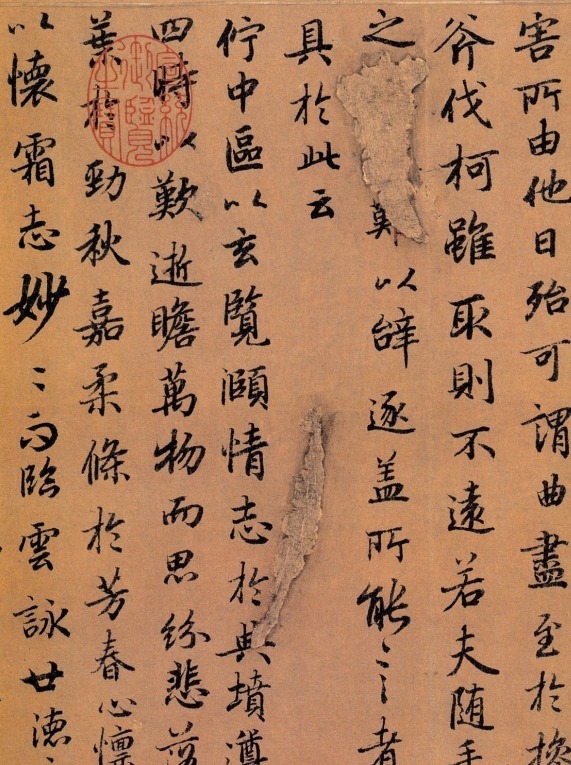 害所由他日殆可謂曲盡至於操
斧伐柯雖取則不遠若夫随手
之難以辤逐盖所能言者
具於此云
佇中區以玄覽頤情志於典墳遵
四時以歎逝瞻萬物而思紛悲落
葉於勁秋嘉柔條於芳春心懍
以懷霜志妙〻而臨雲詠世德
宣統御覽之寶